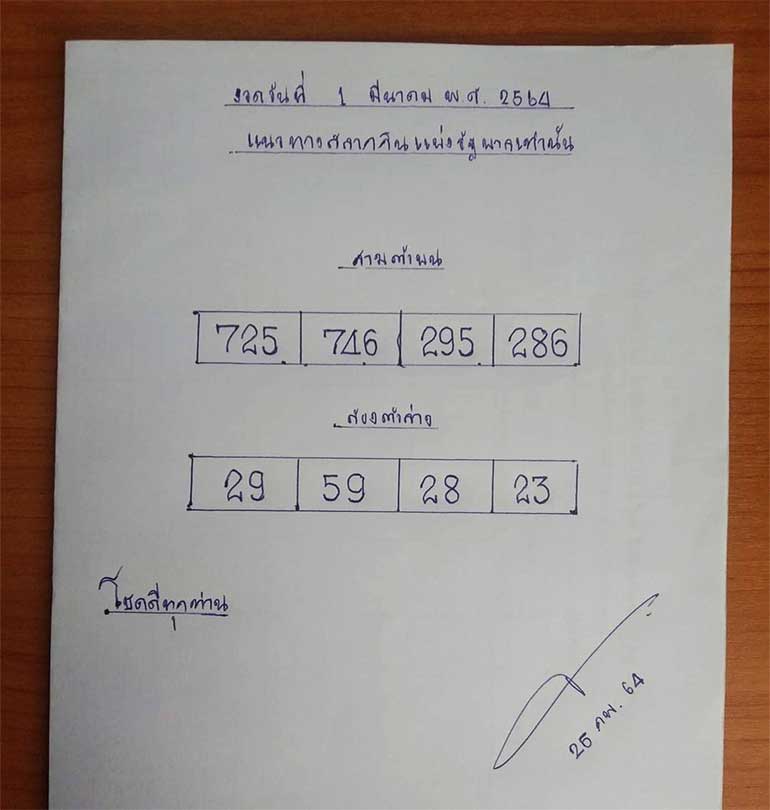 งวดวันที่ 1 มีนาคม พ.ศ. 2564
แนวทางสลากกินแบ่งรัฐบาลเท่านั้น
สามตัวบน
725 746 295 286
สองตัวล่าง
29 59 28 23
โชคดีทุกท่าน
25 กพ. 64